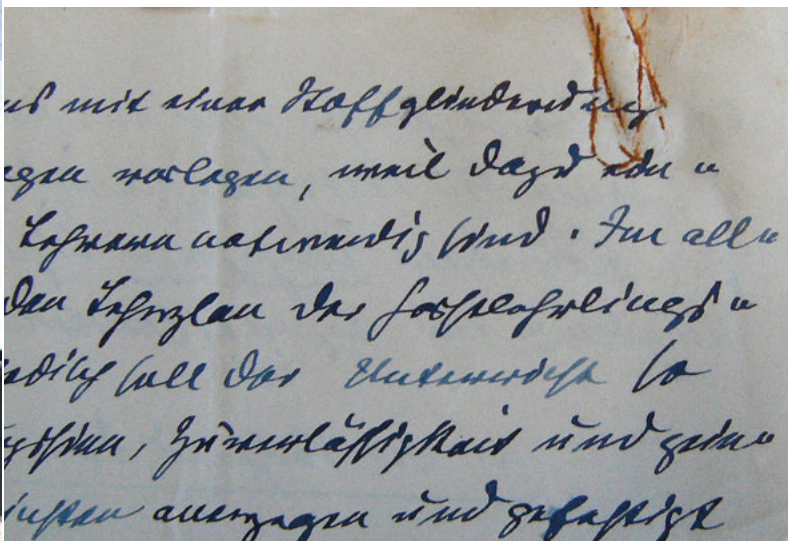 mit einer Stoffgliederung
vorlegen, weil dazu
Lehrern notwendig sind. Im all-
den Lehrplan der Forstlehrlings-
soll der Unterricht so
Zuverlässigkeit und
anerzogen und gefestigt